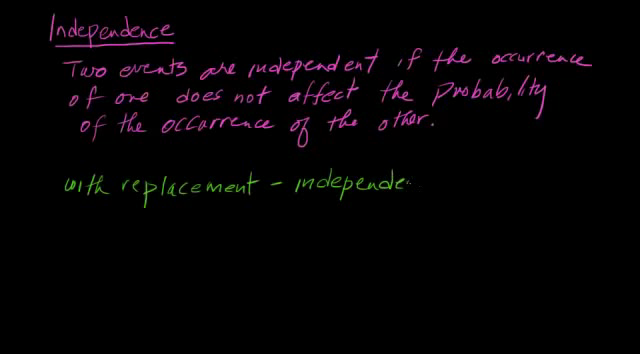 Independence
Two events are independent if the occurrence
of one does not affect the Probability
of the occurrence of the other.
with replacement - independe